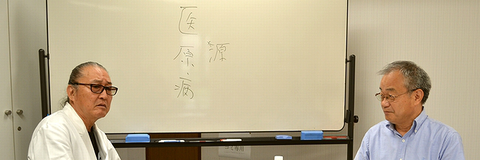 医原病
源